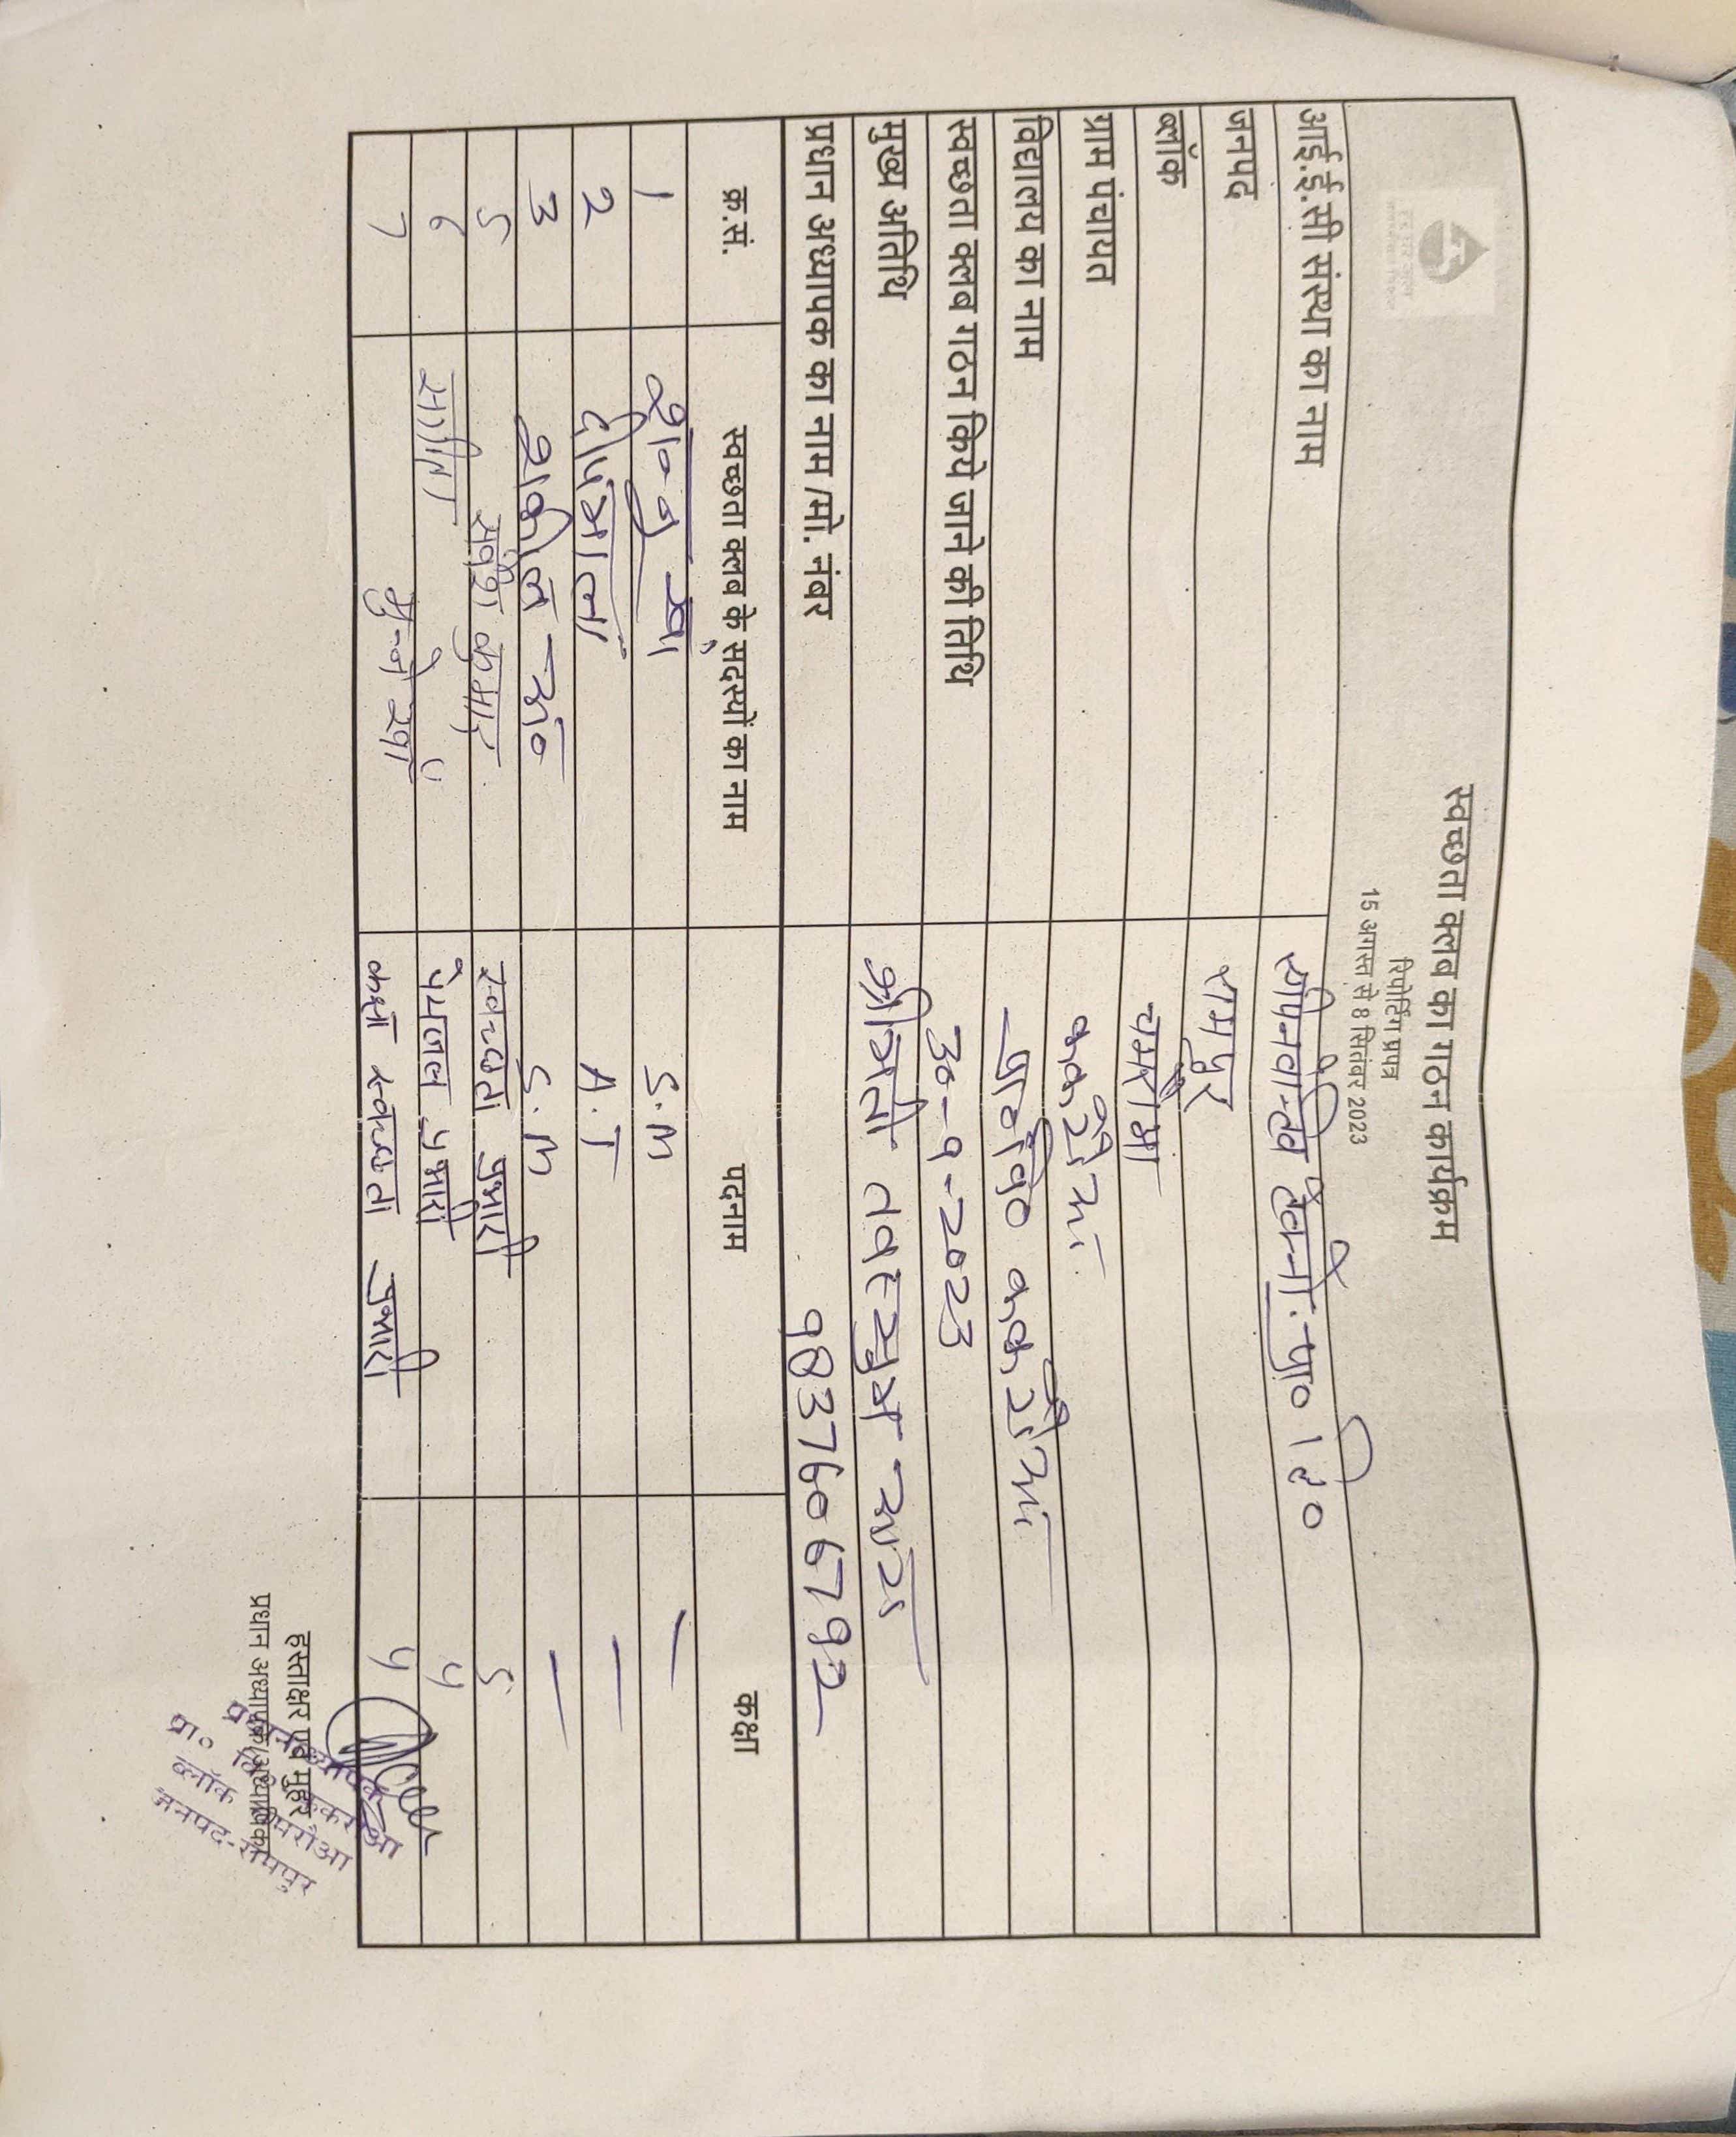 स्वच्छता क्लब का गठन कार्यक्रम
रिपोर्टिंग प्रपत्र
15 अगस्त से 8 सितंबर 2023
आई.ई.सी संस्था का नाम
जनपद रामपुर
ब्लॉक चमरौआ
ग्राम पंचायत ककरौआ
विद्यालय का नाम प्रा० वि० ककरौआ
स्वच्छता क्लब गठन किये जाने की तिथि 30-9-2023
मुख्य अतिथि श्रीमती तबस्सुम आरा
प्रधान अध्यापक का नाम /मो. नंबर 9837606792
क्र.सं. स्वच्छता क्लब के सदस्यों का नाम पदनाम कक्षा
1 S.M —
2 A.T —
3 S.M —
5 कुमार स्वच्छता प्रभारी 5
6 पेयजल प्रभारी 4
7 कक्षा स्वच्छता प्रभारी 4
हस्ताक्षर एवं मुहर
प्रधान अध्यापक/अध्यापिका
प्रधानाध्यापक
प्रा० वि० ककरौआ
ब्लॉक चमरौआ
जनपद-रामपुर